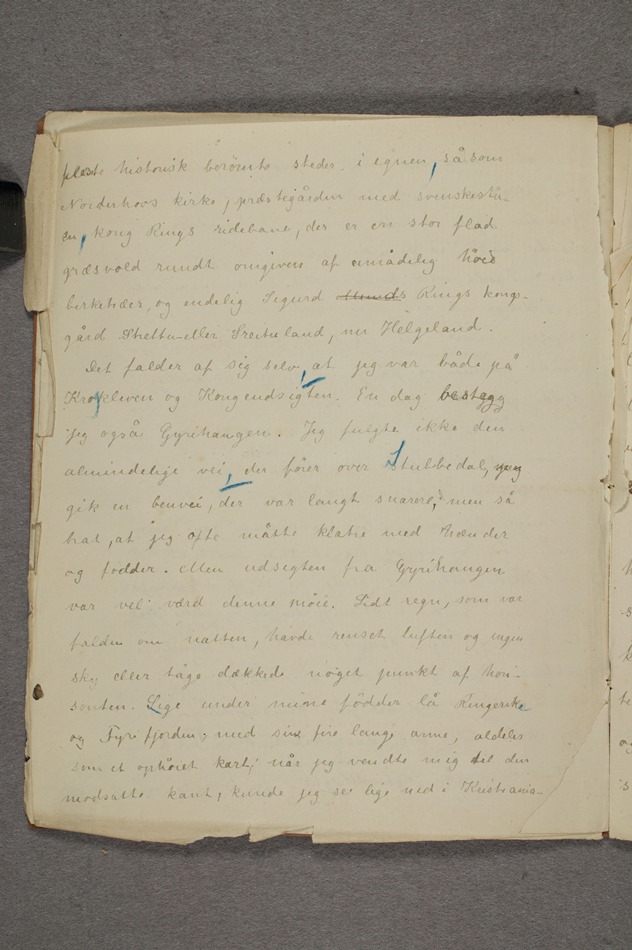 fleste historisk berömte steder i egnen, så som
Norderhovs kirke, præstegården med svenskestu-
en, kong Rings ridebane, der er en stor flad
græsvold rundt omgiven af umådelig höie
birketræer, og endelig Sigurd Rings kongs-
gård Streitu- eller Streituland, nu Helgeland.
Det falder af sig selv, at jeg var både på
Krokleven og Kongeudsigten. En dag besteg
jeg også Gyrihaugen. Jeg fulgte ikke den
almindelige vei, der förer over Stubbedal, jeg
gik en benvei, der var langt snarere, men så
brat, at jeg ofte måtte klatre med hænder
og födder. Men udsigten fra Gyrihaugen
var vel værd denne möie. Lidt regn, som var
falden om natten, havde renset luften og ingen
sky eller tåge dækkede noget punkt af hori-
sonten. Lige under mine födder lå Ringerike
og Tyrifjorden med sine fire lange arme, aldeles
som et ophöiet kart; når jeg vendte mig til den
modsatte kant, kunde jeg se lige ned i Kristiania-